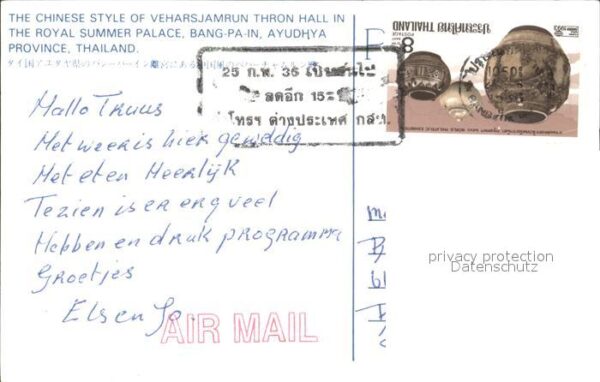 THE CHINESE STYLE OF VEHARSJAMRUN THRON HALL IN
THE ROYAL SUMMER PALACE, BANG-PA-IN, AYUDHYA
PROVINCE, THAILAND.
タイ国アユタヤ県のバンパーイン離宮にある中国風の
25 ก.พ. 36 เป็นต้นไป
ลดอีก 15
โทรฯ ต่างประเทศ กสท.
ประเทศไทย THAILAND
8
POSTAGE
1993
Hallo Truus
Het weer is hier geweldig
Het eten Heerlijk
Te zien is er erg veel
Hebben en druk programma
Groetjes
Els en Jo.
AIR MAIL
privacy protection
Datenschutz